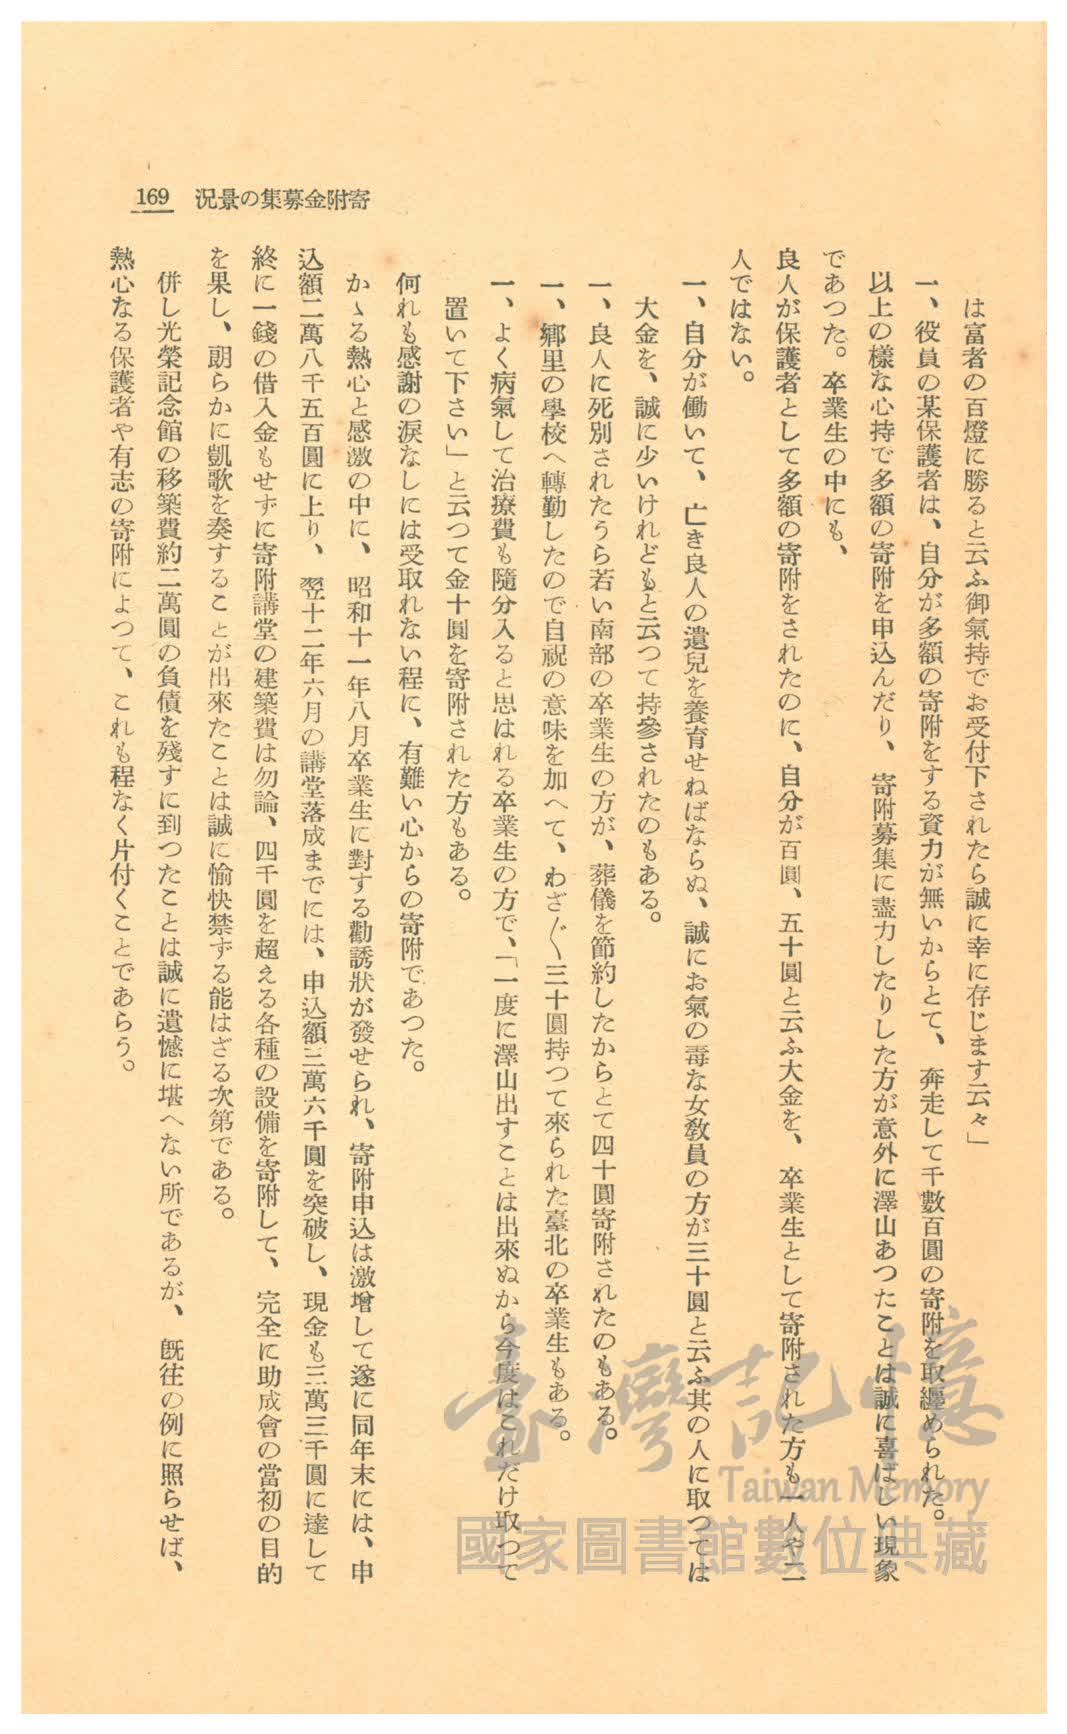 169 況景の集募金附寄
は富者の百燈に勝ると云ふ御氣持でお受付下されたら誠に幸に存じます云々」
一、役員の某保護者は、自分が多額の寄附をする資力が無いからとて、奔走して千數百圓の寄附を取纒められた。
以上の樣な心持で多額の寄附を申込んだり、寄附募集に盡力したりした方が意外に澤山あつたことは誠に喜ばしい現象
であつた。卒業生の中にも、
良人が保護者として多額の寄附をされたのに、自分が百圓、五十圓と云ふ大金を、卒業生として寄附された方も一人や二
人ではない。
一、自分が働いて、亡き良人の遺兒を養育せねばならぬ、誠にお氣の毒な女敎員の方が三十圓と云ふ其の人に取つては
大金を、誠に少いけれどもと云つて持參されたのもある。
一、良人に死別されたうら若い南部の卒業生の方が、葬儀を節約したからとて四十圓寄附されたのもある。
一、鄕里の學校へ轉勤したので自祝の意味を加へて、わざ〱三十圓持つて來られた臺北の卒業生もある。
一、よく病氣して治療費も隨分入ると思はれる卒業生の方で、「一度に澤山出すことは出來ぬから今度はこれだけ取つて
置いて下さい」と云つて金十圓を寄附された方もある。
何れも感謝の淚なしには受取れない程に、有難い心からの寄附であつた。
かゝる熱心と感激の中に、昭和十一年八月卒業生に對する勸誘狀が發せられ、寄附申込は激增して遂に同年末には、申
込額二萬八千五百圓に上り、翌十二年六月の講堂落成までには、申込額三萬六千圓を突破し、現金も三萬三千圓に達して
終に一錢の借入金もせずに寄附講堂の建築費は勿論、四千圓を超える各種の設備を寄附して、完全に助成會の當初の目的
を果し、朗らかに凱歌を奏することが出來たことは誠に愉快禁ずる能はざる次第である。
併し光榮記念館の移築費約二萬圓の負債を殘すに到つたことは誠に遺憾に堪へない所であるが、既往の例に照らせば、
熱心なる保護者や有志の寄附によつて、これも程なく片付くことであらう。
臺灣記憶
Taiwan Memory
國家圖書館數位典藏